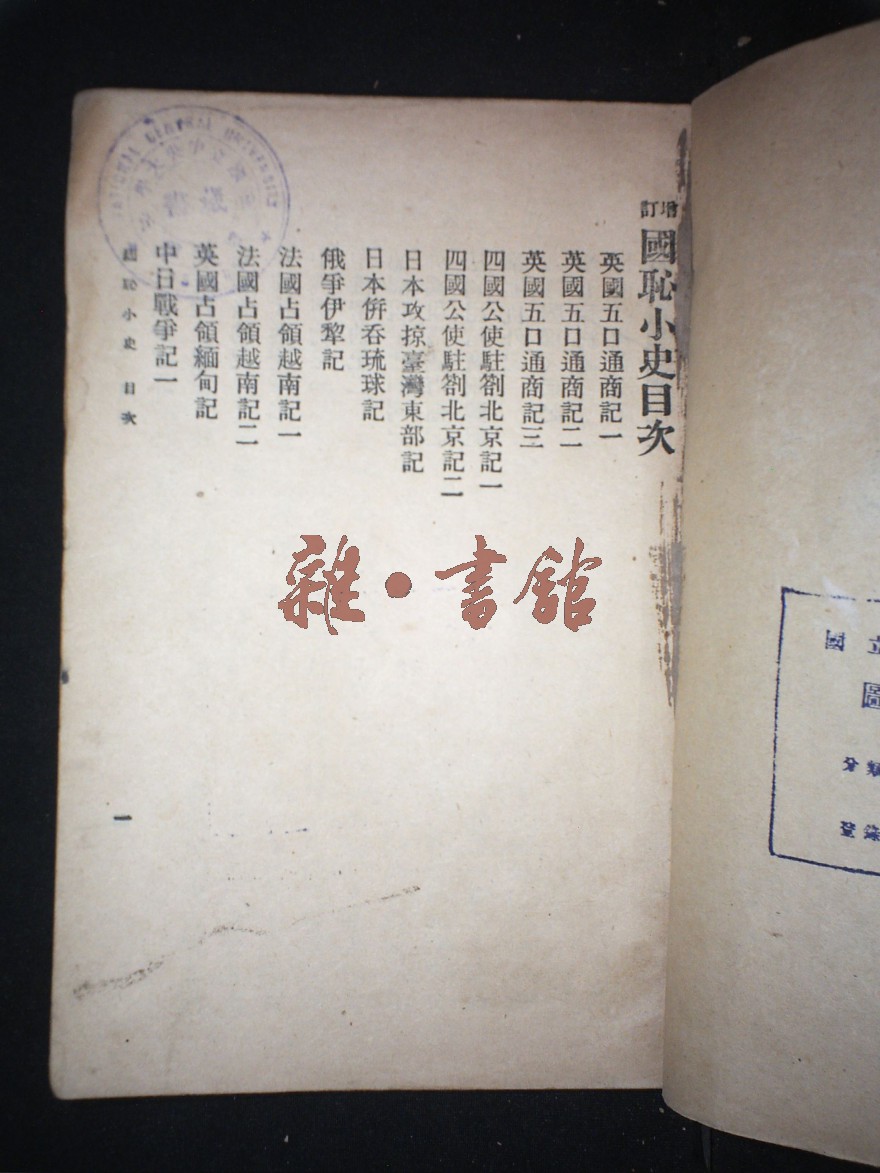 增訂 國恥小史目次
英國五口通商記一
英國五口通商記二
英國五口通商記三
四國公使駐劄北京記一
四國公使駐劄北京記二
日本攻掠臺灣東部記
日本倂吞琉球記
俄爭伊犂記
法國占領越南記一
法國占領越南記二
英國占領緬甸記
中日戰爭記一
國恥小史 目次
一
NATIONAL CENTRAL UNIVERSITY
雜·書館
國立
圖
分類
登錄